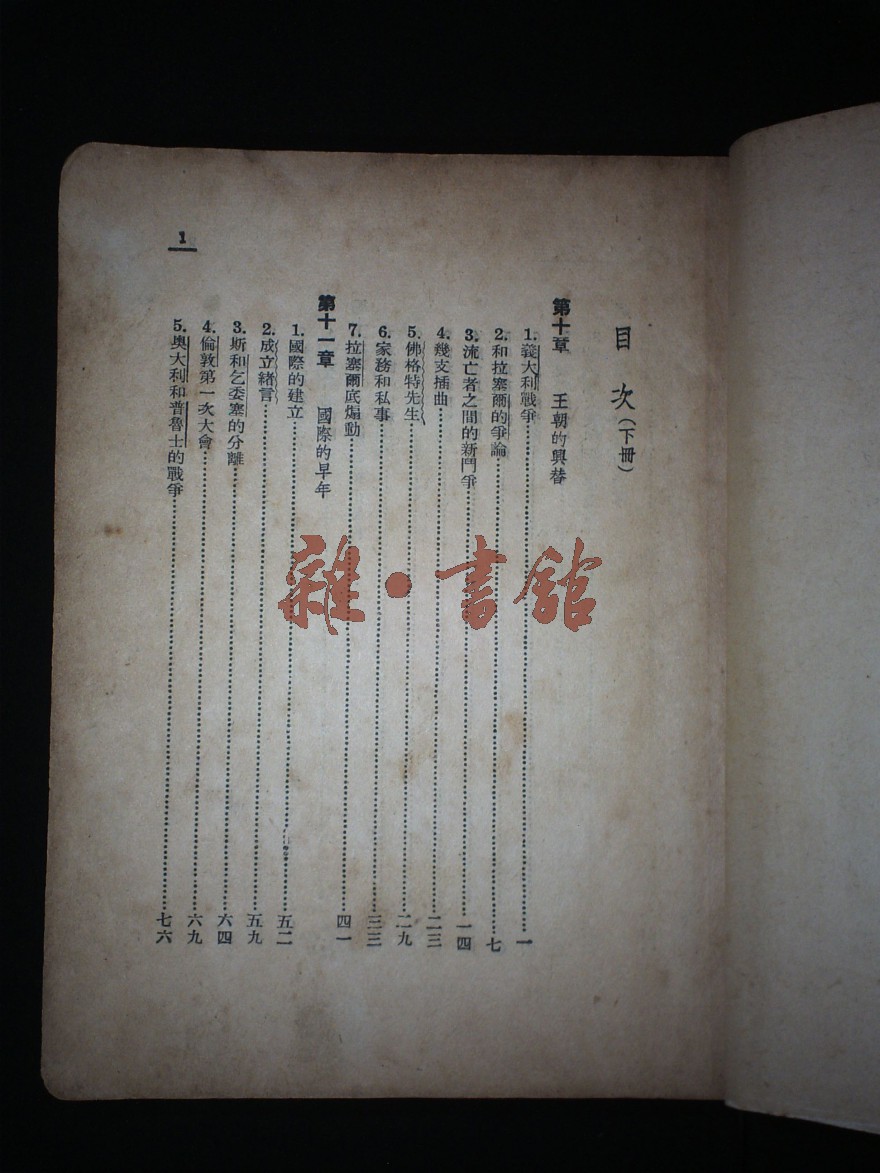 目次(下冊)
第十章 王朝的興替
1.義大利戰爭……一
2.和拉塞爾的爭論……七
3.流亡者之間的新鬥爭……一四
4.幾支插曲……二三
5.佛格特先生……二九
6.家務和私事……三三
7.拉塞爾底煽動……四一
第十一章 國際的早年
1.國際的建立……五二
2.成立緒言……五九
3.斯和乞委塞的分離……六四
4.倫敦第一次大會……六九
5.奧大利和普魯士的戰爭……七六
1
雜·書館